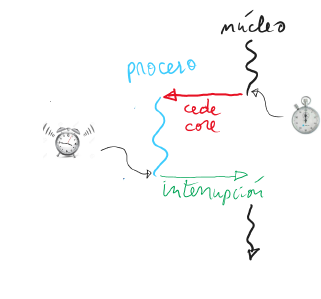 núcleo
proceso
cede
core
interrupción